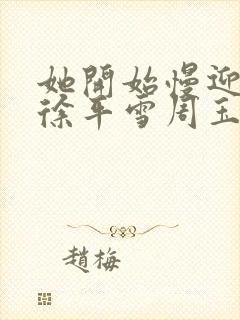 她開始慢迎
徐年雪周玉
趙梅